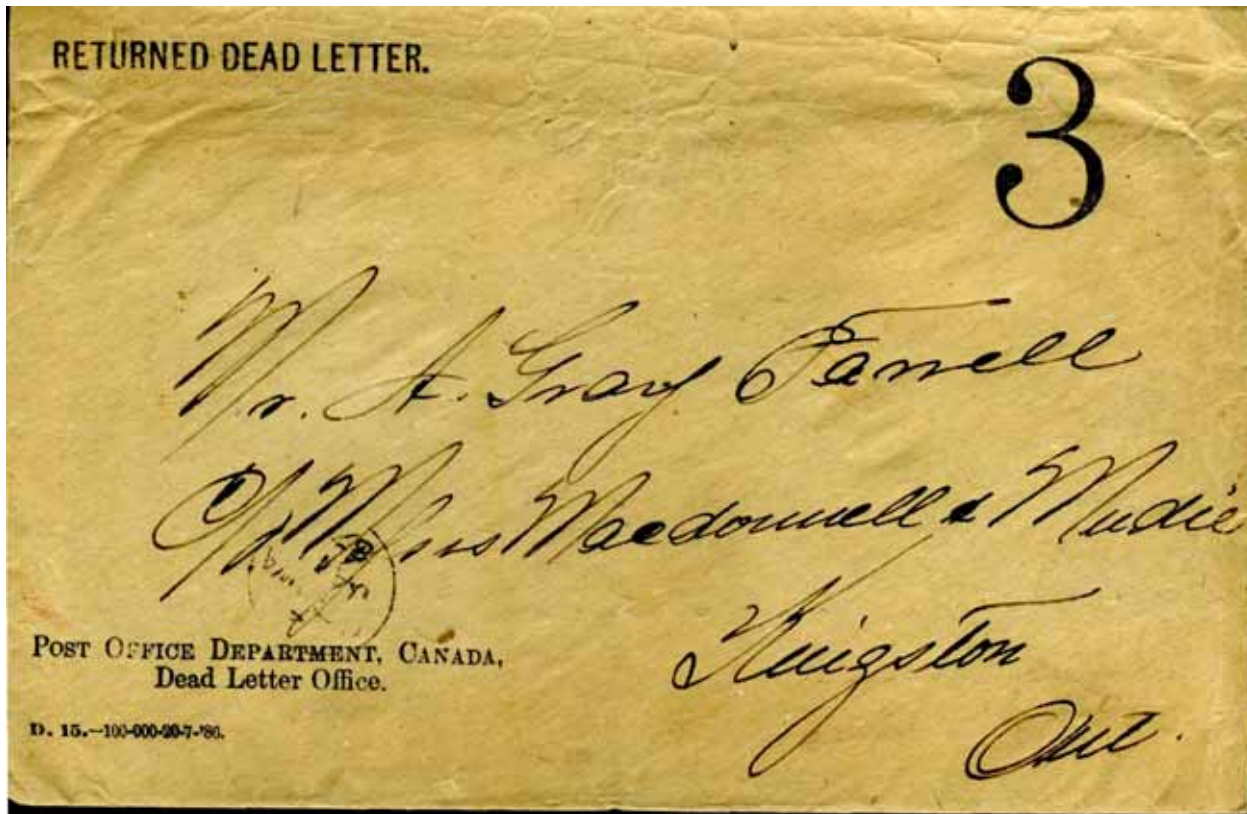 RETURNED DEAD LETTER.
3
Mr. A. Gray Farrell
C/o Messrs Macdonnell & Mudie
Kingston
Ont.
POST OFFICE DEPARTMENT, CANADA,
Dead Letter Office.
D. 15.—100-000-20-7-'86.